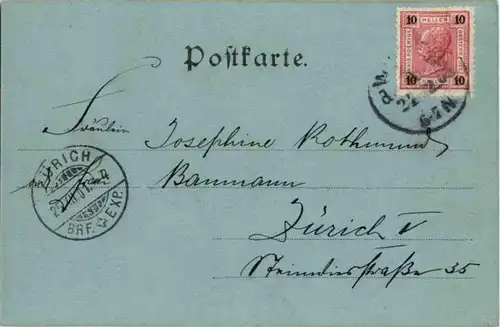 Postkarte.
10 HELLER 10
10 10
Fräulein Josephine Rothmund
Frau Baumann
Zürich V
Steinwiesstraße 35
ZÜRICH
BRF. EXP.